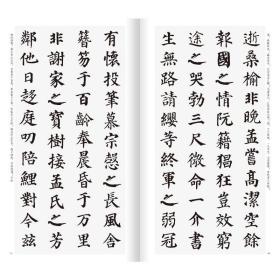 逝桑榆非晚孟嘗高潔空餘
報國之情阮籍猖狂豈效窮
途之哭勃三尺微命一介書
生無路請纓等終軍之弱冠
有懷投筆慕宗愨之長風舍
簪笏于百齡奉晨昏于万里
非謝家之寶樹接孟氏之芳
鄰他日趍庭叨陪鯉對今兹